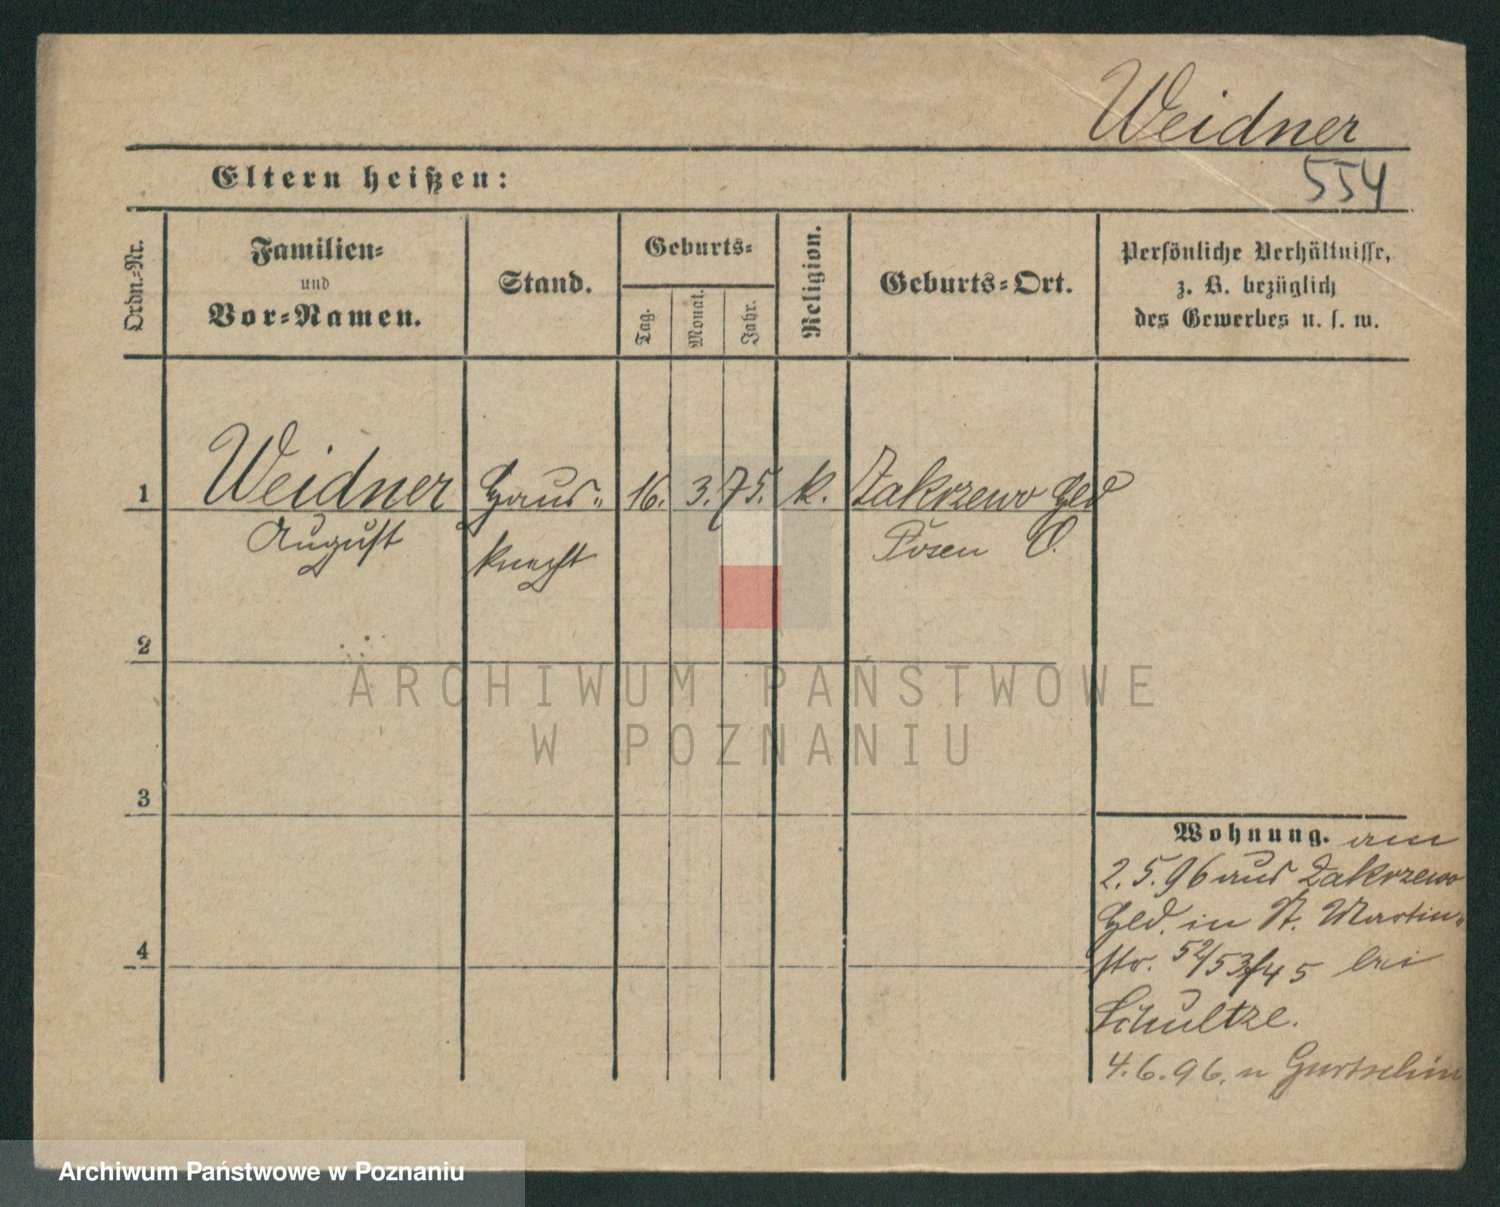 Weidner
554
Eltern heißen:
Ordn.-Nr.
Familien-
und
Vor-Namen.
Stand.
Geburts-
Tag.
Monat.
Jahr.
Religion.
Geburts-Ort.
Persönliche Verhältnisse,
z. B. bezüglich
des Gewerbes u. s. w.
1 Weidner Haus- 16. 3. 75. k. Zakrzewo Hld
August knecht Posen O.
2
3
4
Wohnung. am
2.5.96 aus Zakrzewo
Hld. in St. Martin-
str. 52/53/45 bei
Schultze.
4.6.96. n Gurtschin
ARCHIWUM PAŃSTWOWE
W POZNANIU
Archiwum Państwowe w Poznaniu